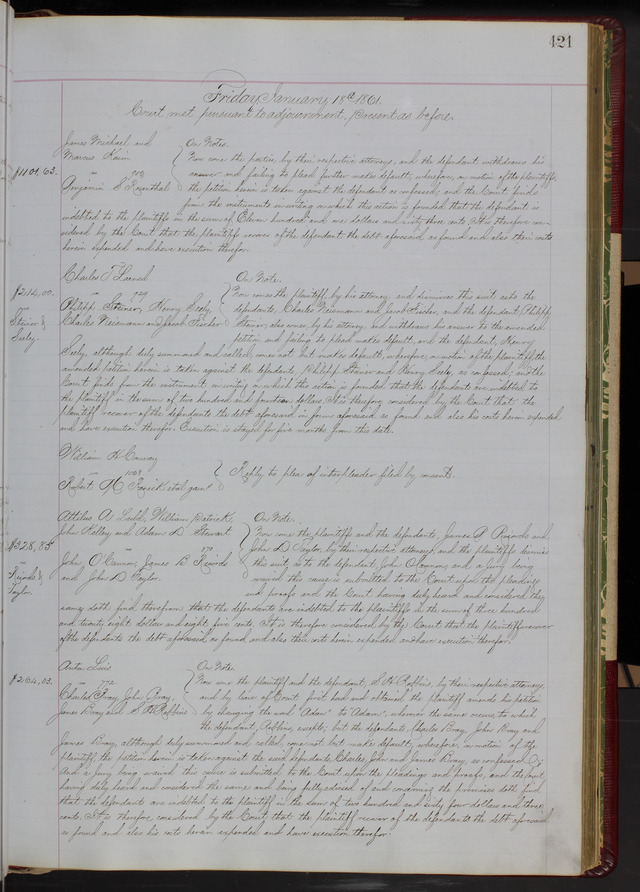 421
Friday January 18th 1861.
Court met pursuant to adjournment, Present as before.
James Michael and
Marcus Kain
vs 713
Benjamin S. Rosenthal
$1101,63.
On Notes.
Now come the parties, by their respective attorneys, and the defendant withdraws his
answer and failing to plead further makes default, wherefore, on motion of the plaintiffs,
the petition herein is taken against the defendant as confessed, and the Court finds
from the instruments in writing on which this action is founded that the defendant is
indebted to the plaintiffs in the sum of Eleven hundred and one dollars and sixty three cents. It is therefore con-
sidered by the Court that the plaintiffs recover of the defendant the debt aforesaid as found and also their costs
herein expended and have execution therefor.
Charles T.
vs 729
Philipp Steiner, Henry Seely,
Charles Wiesemann and Jacob Fischer
$214,00.
vs
Steiner &
Seely
On Note.
Now comes the plaintiff, by his attorney and dismisses this suit as to the
defendants, Charles Wiesemann and Jacob Fischer, and the defendant, Philipp
Steiner, also comes by his attorney and withdraws his answer to the amended
petition and failing to plead makes default, and the defendant, Henry
Seely, although duly summoned and called, comes not but makes default, wherefore, on motion of the plaintiff, the
amended petition herein is taken against the defendants, Philipp Steiner and Henry Seely, as confessed, and the
Court finds from the instrument in writing on which the action is founded that the defendants are indebted to
the plaintiff in the sum of two hundred and fourteen dollars. It is therefore considered by the Court that the
plaintiff recover of the defendants the debt aforesaid in form aforesaid as found and also his costs herein expended
and have execution therefor. Execution is stayed for five months from this date.
William H. Conway
vs 1009
Robert M. et al garnt
Reply to plea of interpleader filed by consent.
Attilus A. Ladd, William Patrick,
John Holley and Adam D. Stewart
vs 870
John O'Connor, James B. Ricords
and John D. Taylor.
$328,85
vs
Ricords &
Taylor
On Note.
Now come the plaintiffs and the defendants, James B. Ricords and
John D. Taylor, by their respective attorneys, and the plaintiffs dismiss
this suit, as to the defendant, John O'Connor, and a jury being
waived this cause is submitted to the Court upon the pleadings
and proofs and the Court having duly heard and considered the
same, doth find therefrom that the defendants are indebted to the plaintiffs in the sum of three hundred
and twenty eight dollars and eighty five cents. It is therefore considered by the Court that the plaintiffs recover
of the defendants the debt aforesaid as found and also their costs herein expended, and have execution therefor.
vs 772
Charles Bray, John Bray,
James Bray and S. H. Robbins
$264,03.
On Note.
Now come the plaintiff and the defendant, S. H. Robbins, by their respective attorneys,
and by leave of Court first had and obtained the plaintiff amends his petition
by changing the word "Adam" to "Adams", wherever the same occurs, to which
the defendant, Robbins, excepts; but the defendants Charles Bray, John Bray and
James Bray, although duly summoned and called, come not but make default, wherefore, on motion of the
plaintiff, the petition herein is taken against the said defendants Charles, John and James Bray, as confessed;
And a jury being waived this cause is submitted to the Court upon the pleadings and proofs, and the Court
having duly heard and considered the same and being fully advised of and concerning the premises doth find
that the defendants are indebted to the plaintiff in the sum of two hundred and sixty four dollars and three
cents. It is therefore considered by the Court that the plaintiff recover of the defendants the debt aforesaid
as found and also his costs herein expended and have execution therefor.